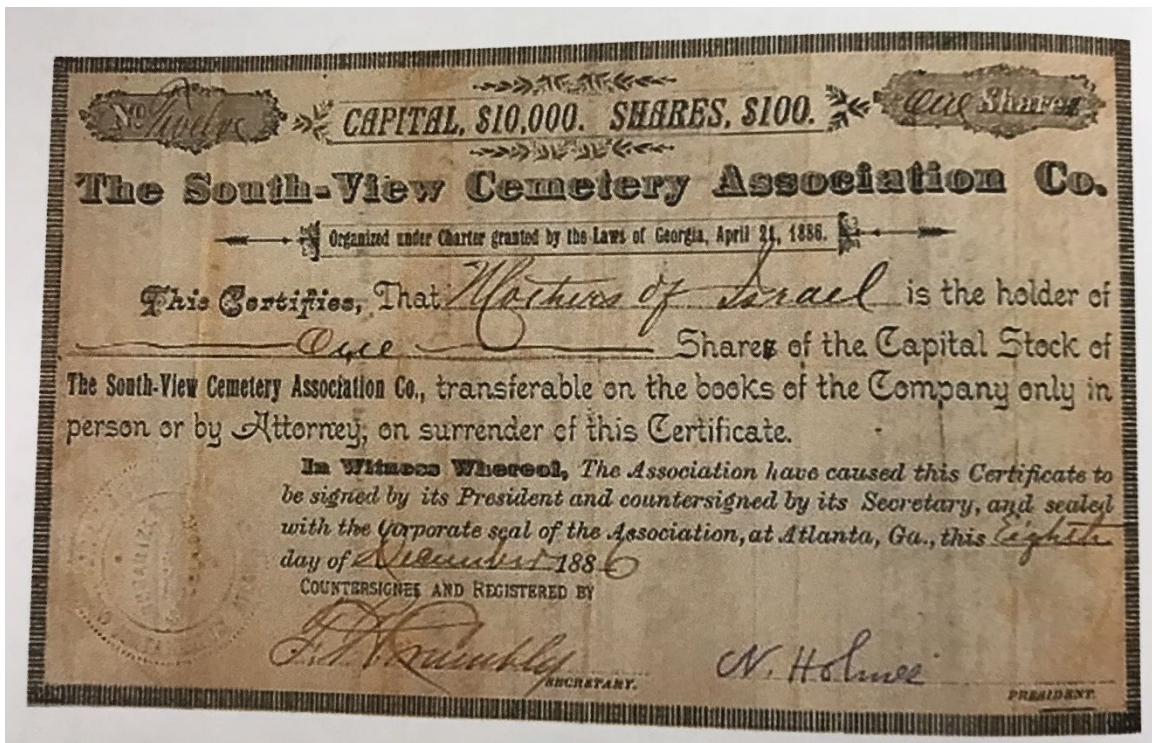 No Twelve
CAPITAL, $10,000. SHARES, $100.
One Shares
The South-View Cemetery Association Co.
Organized under Charter granted by the Laws of Georgia, April 21, 1886.
This Certifies, That Mothers of Israel is the holder of
One Shares of the Capital Stock of
The South-View Cemetery Association Co., transferable on the books of the Company only in
person or by Attorney, on surrender of this Certificate.
In Witness Whereof, The Association have caused this Certificate to
be signed by its President and countersigned by its Secretary, and sealed
with the Corporate seal of the Association, at Atlanta, Ga., this Eighth
day of December 1886
COUNTERSIGNED AND REGISTERED BY
N. Holmes
SECRETARY.
PRESIDENT.